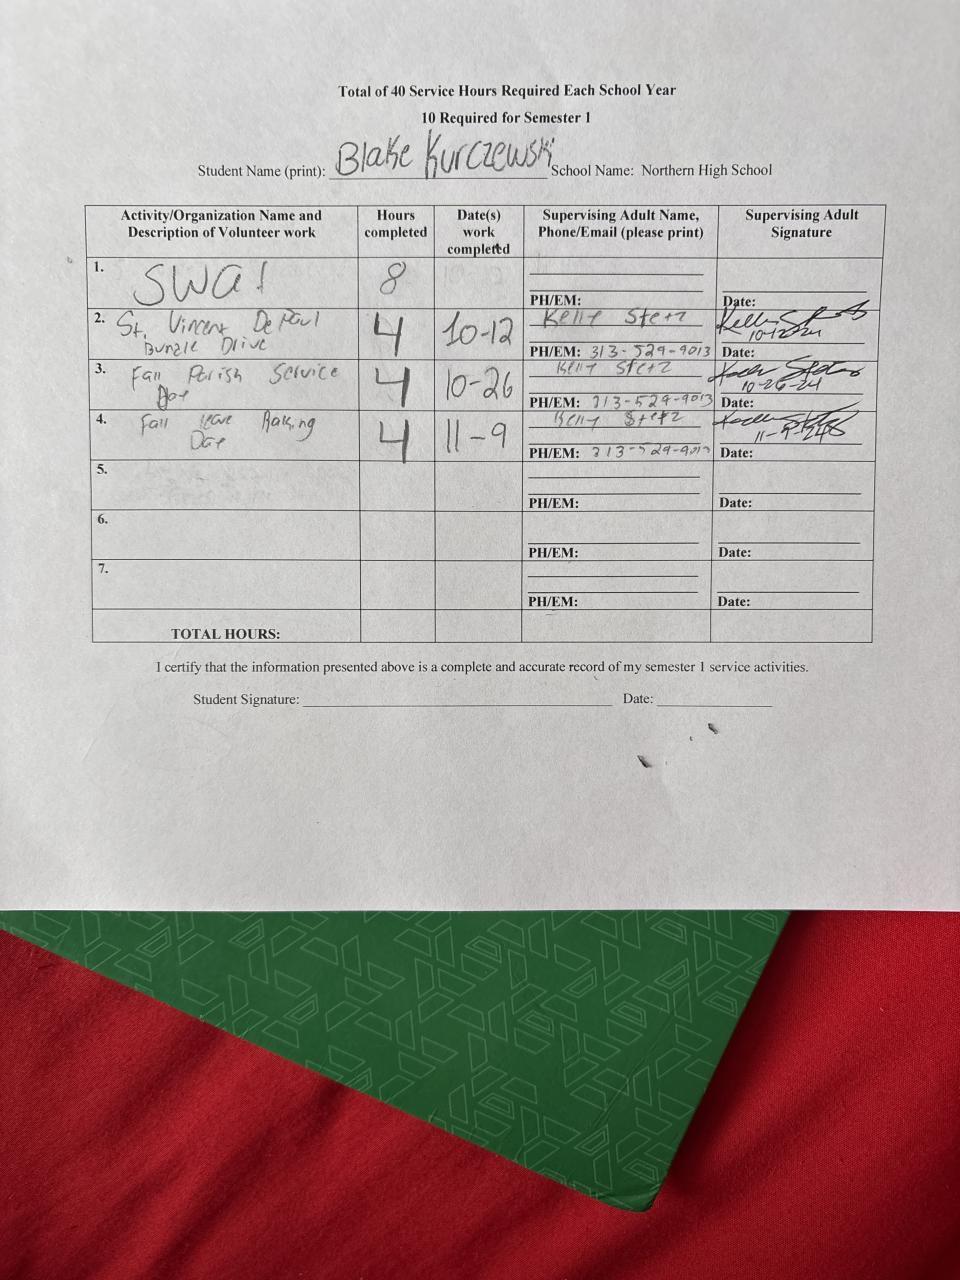 Total of 40 Service Hours Required Each School Year
10 Required for Semester 1
Student Name (print): Blake Kurczewski School Name: Northern High School
Activity/Organization Name and Description of Volunteer work
Hours completed
Date(s) work completed
Supervising Adult Name, Phone/Email (please print)
Supervising Adult Signature
1. 8
PH/EM: Date:
2. St. Vincent DePaul
Bundle Drive
4 10-12
Kelly
PH/EM: 313-529-9013 Date:
10-12-24
3. Fall Parish Service
4 10-26
Kelly
PH/EM: 313-529-9013 Date:
10-26-24
4. Fall Raking
4 11-9
Kelly
PH/EM: 313-529-9013 Date:
5.
PH/EM: Date:
6.
PH/EM: Date:
7.
PH/EM: Date:
TOTAL HOURS:
I certify that the information presented above is a complete and accurate record of my semester 1 service activities.
Student Signature: Date: